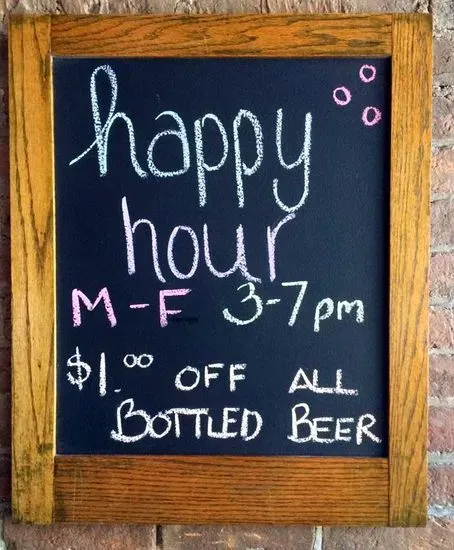 happy
hour
M-F 3-7pm
$1.00 OFF ALL
BOTTLED BEER